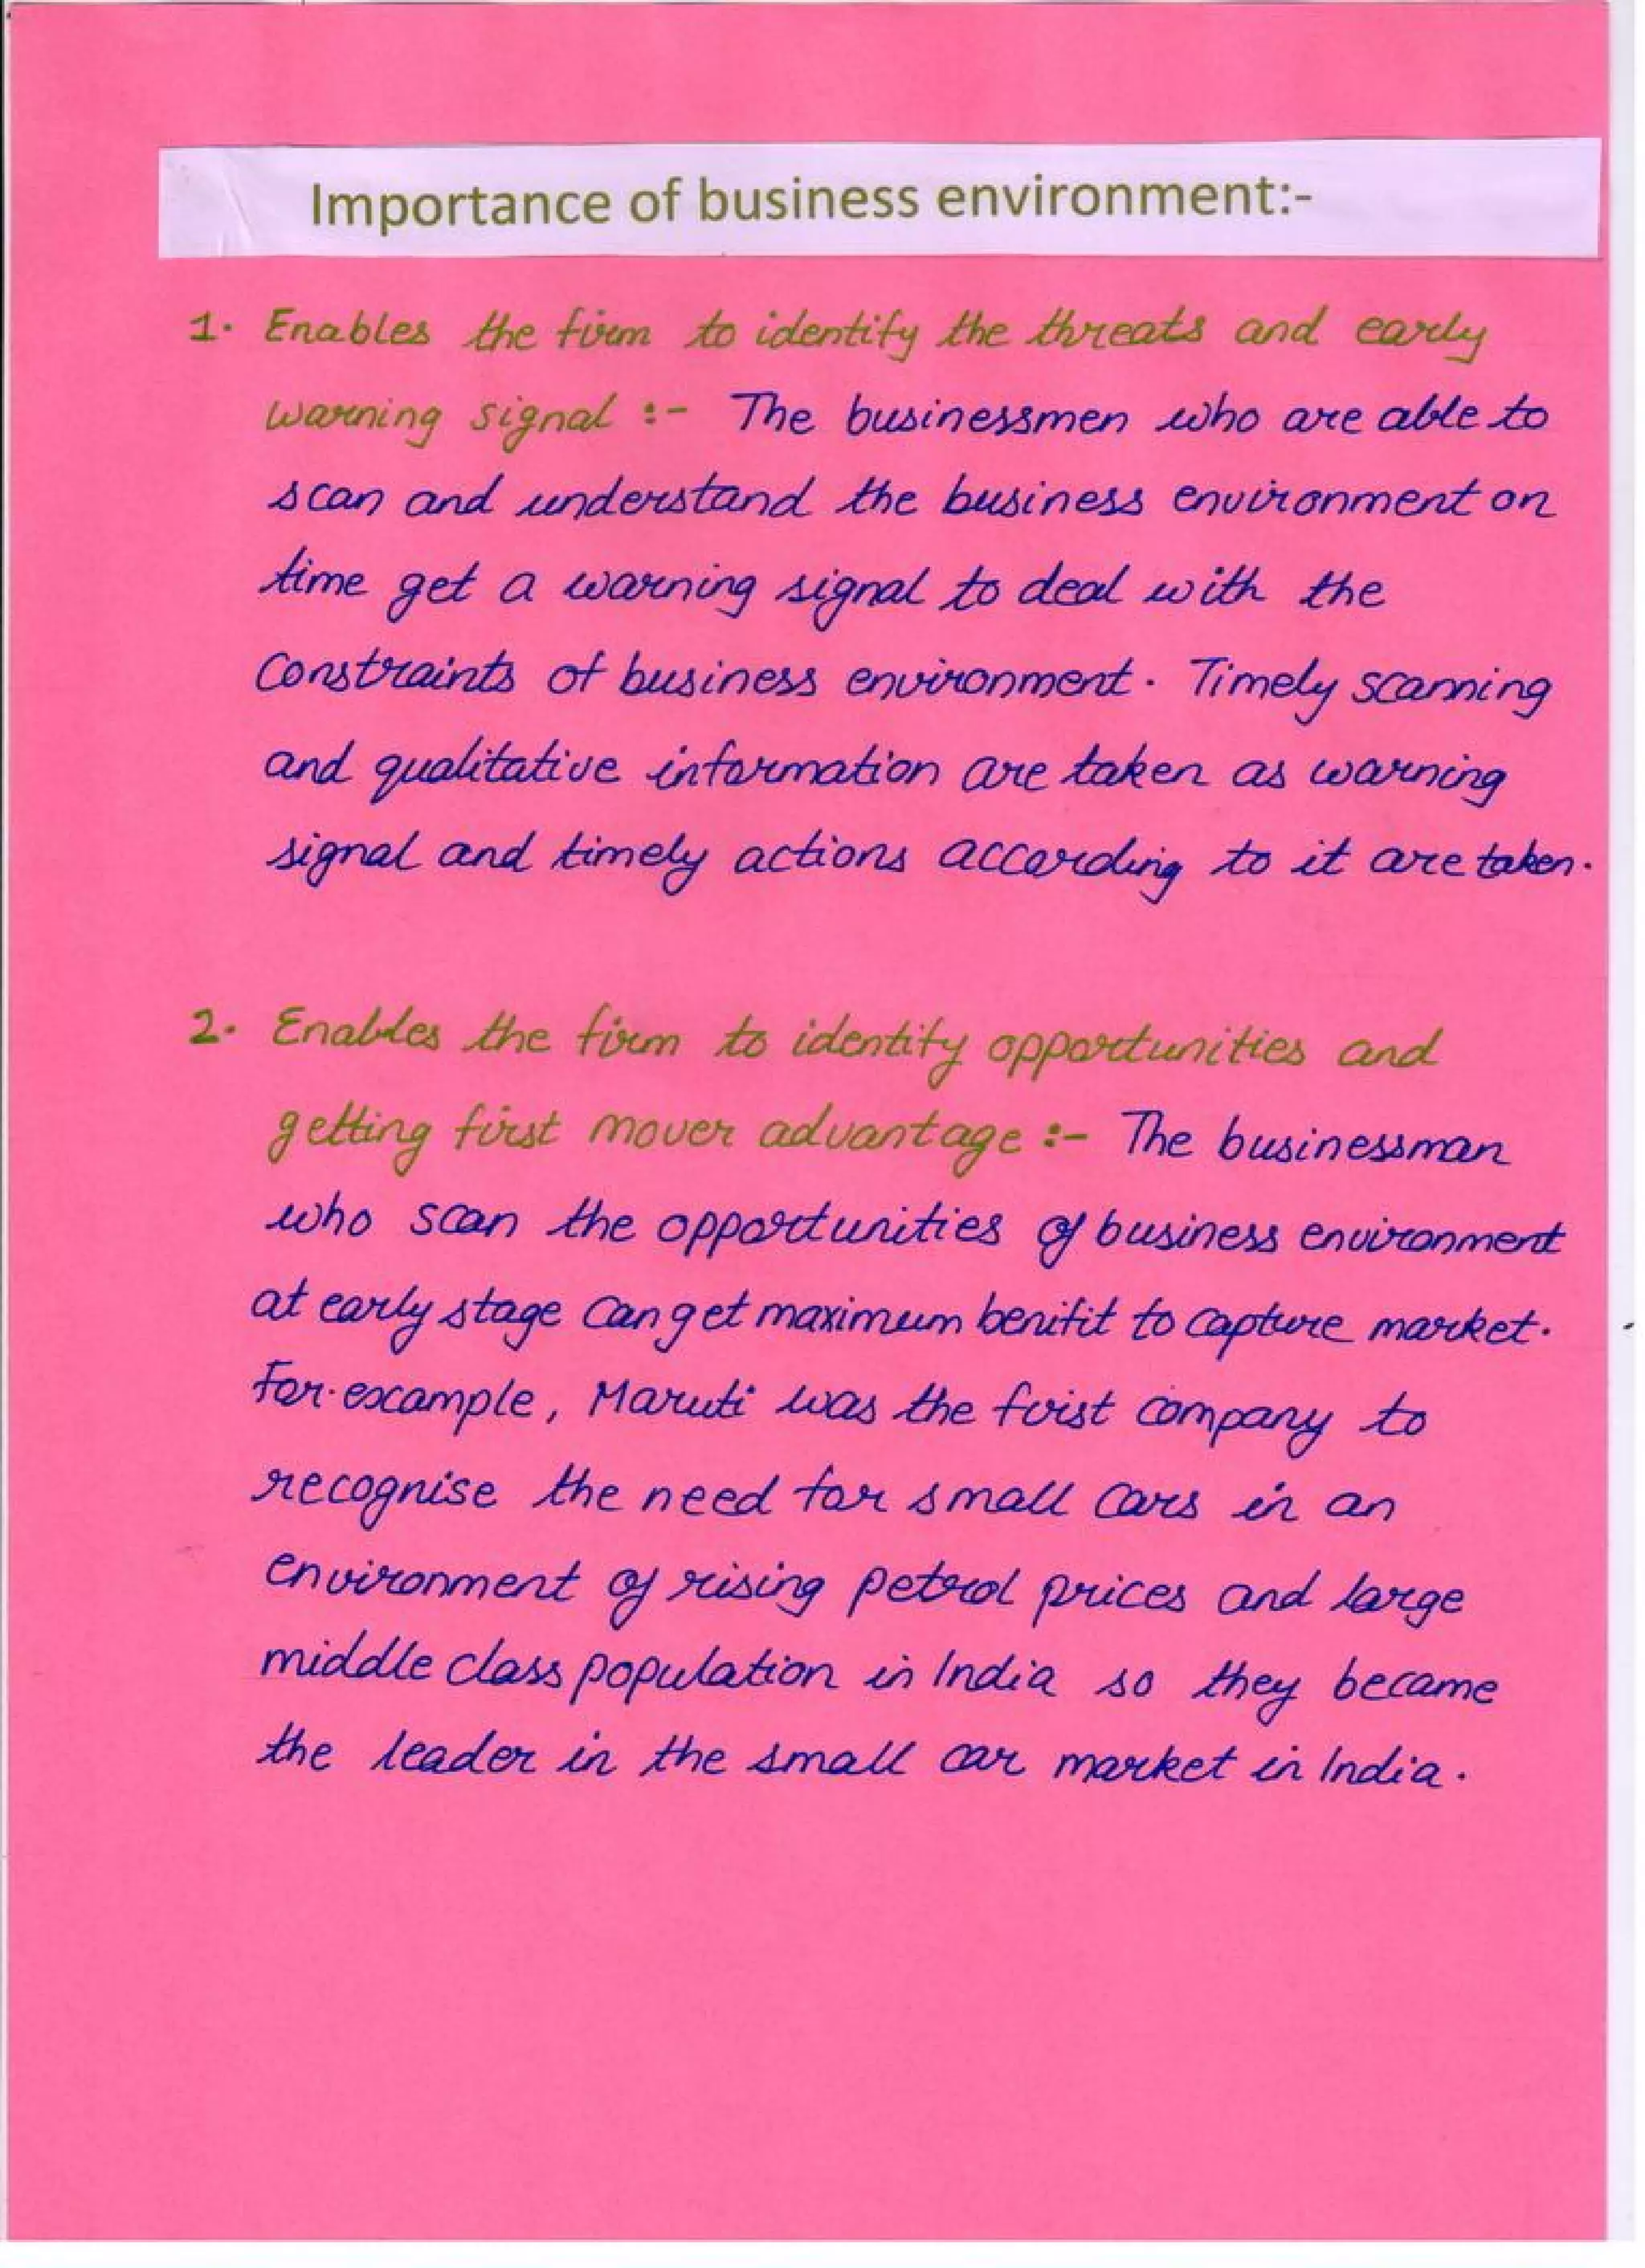 Importance of business environment:-
1. Enables the firm to identify the threats and early
warning signal :- The businessmen who are able to
scan and understand the business environment on
time get a warning signal to deal with the
constraints of business environment. Timely scanning
and qualitative information are taken as warning
signal and timely actions according to it are taken.
2. Enables the firm to identify opportunities and
getting first mover advantage :- The businessman
who scan the opportunities of business environment
at early stage can get maximum benifit to capture market.
For example, Maruti was the first company to
recognise the need for small cars in an
environment of rising petrol prices and large
middle class population in India so they became
the leader in the small car market in India.